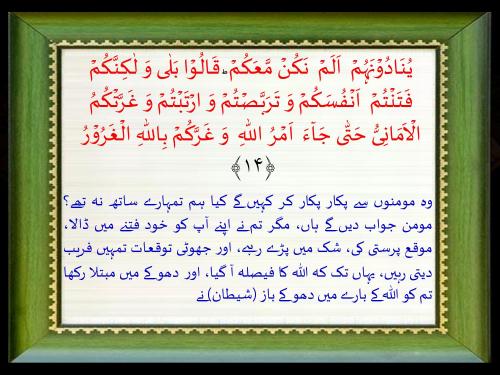 يُنَادُوۡنَهُمۡ اَلَمۡ نَكُنۡ مَّعَكُمۡ‌ؕ قَالُوۡا بَلٰى وَ لٰـكِنَّكُمۡ
فَتَنۡتُمۡ اَنۡفُسَكُمۡ وَ تَرَبَّصۡتُمۡ وَ ارۡتَبۡتُمۡ وَ غَرَّتۡكُمُ
الۡاَمَانِىُّ حَتّٰى جَآءَ اَمۡرُ اللهِ وَ غَرَّكُمۡ بِاللهِ الۡغَرُوۡرُ
﴿۱۴﴾
وہ مومنوں سے پکار پکار کر کہیں گے کیا ہم تمہارے ساتھ نہ تھے؟
مومن جواب دیں گے ہاں، مگر تم نے اپنے آپ کو خود فتنے میں ڈالا،
موقع پرستی کی، شک میں پڑے رہے، اور جھوٹی توقعات تمہیں فریب
دیتی رہیں، یہاں تک کہ اللہ کا فیصلہ آ گیا، اور دھوکے میں مبتلا رکھا
تم کو اللہ کے بارے میں دھوکے باز (شیطان) نے